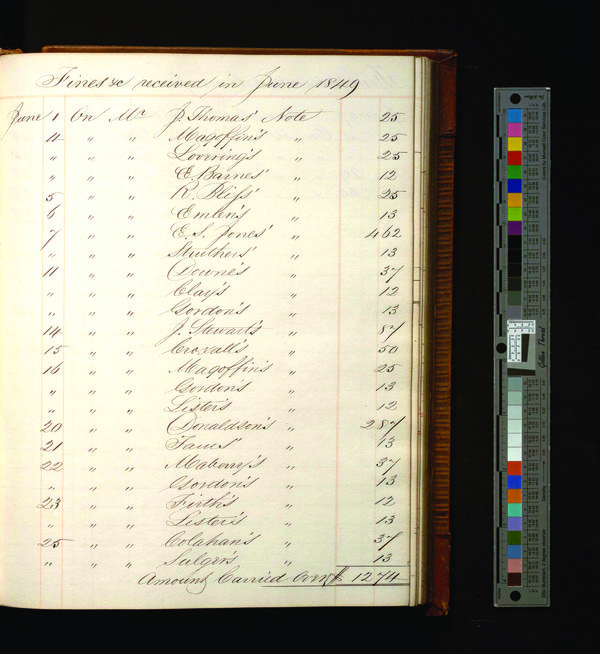 Fines &c received in June 1849
June 1 On Mr J. Thomas' Note 25
14 " " Magoffin's " 25
" " " Loovring's " 25
" " " E. Barnes' " 12
5 " " R. Bliss' " 25
6 " " Emlen's " 13
7 " " E. S. Jones' " 4 62
" " " Struthers' " 13
11 " " Downe's " 37
" " " Clay's " 12
" " " Gordon's " 13
14 " " J. Stewart's " 87
15 " " Croxall's " 50
16 " " Magoffin's " 25
" " " Gordon's " 13
" " " Lister's " 12
20 " " Donaldson's " 2 87
21 " " 13
22 " " Maberry's " 37
" " " Gordon's " 13
23 " " Firth's " 12
" " " Lister's " 13
25 " " Colahan's " 37
" " " Sulger's " 13
Amount Carried Over $ 12 74